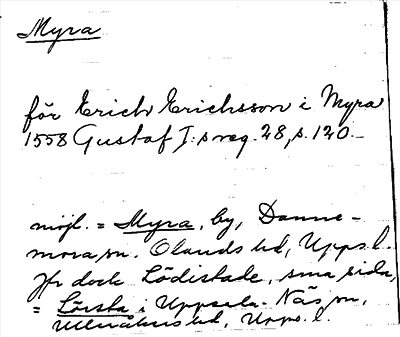 Myra
för Erich Erichsson i Myra
1558 Gustaf I:s reg. 28, s. 120.
möjl. = Myra, by, Danne-
mora sn. Olands hd, Upps. l.
Jfr dock Lödistade, sma sida,
= Lörsta i Uppsala-Näs sn,
Ulleråkers hd, Upps. l.